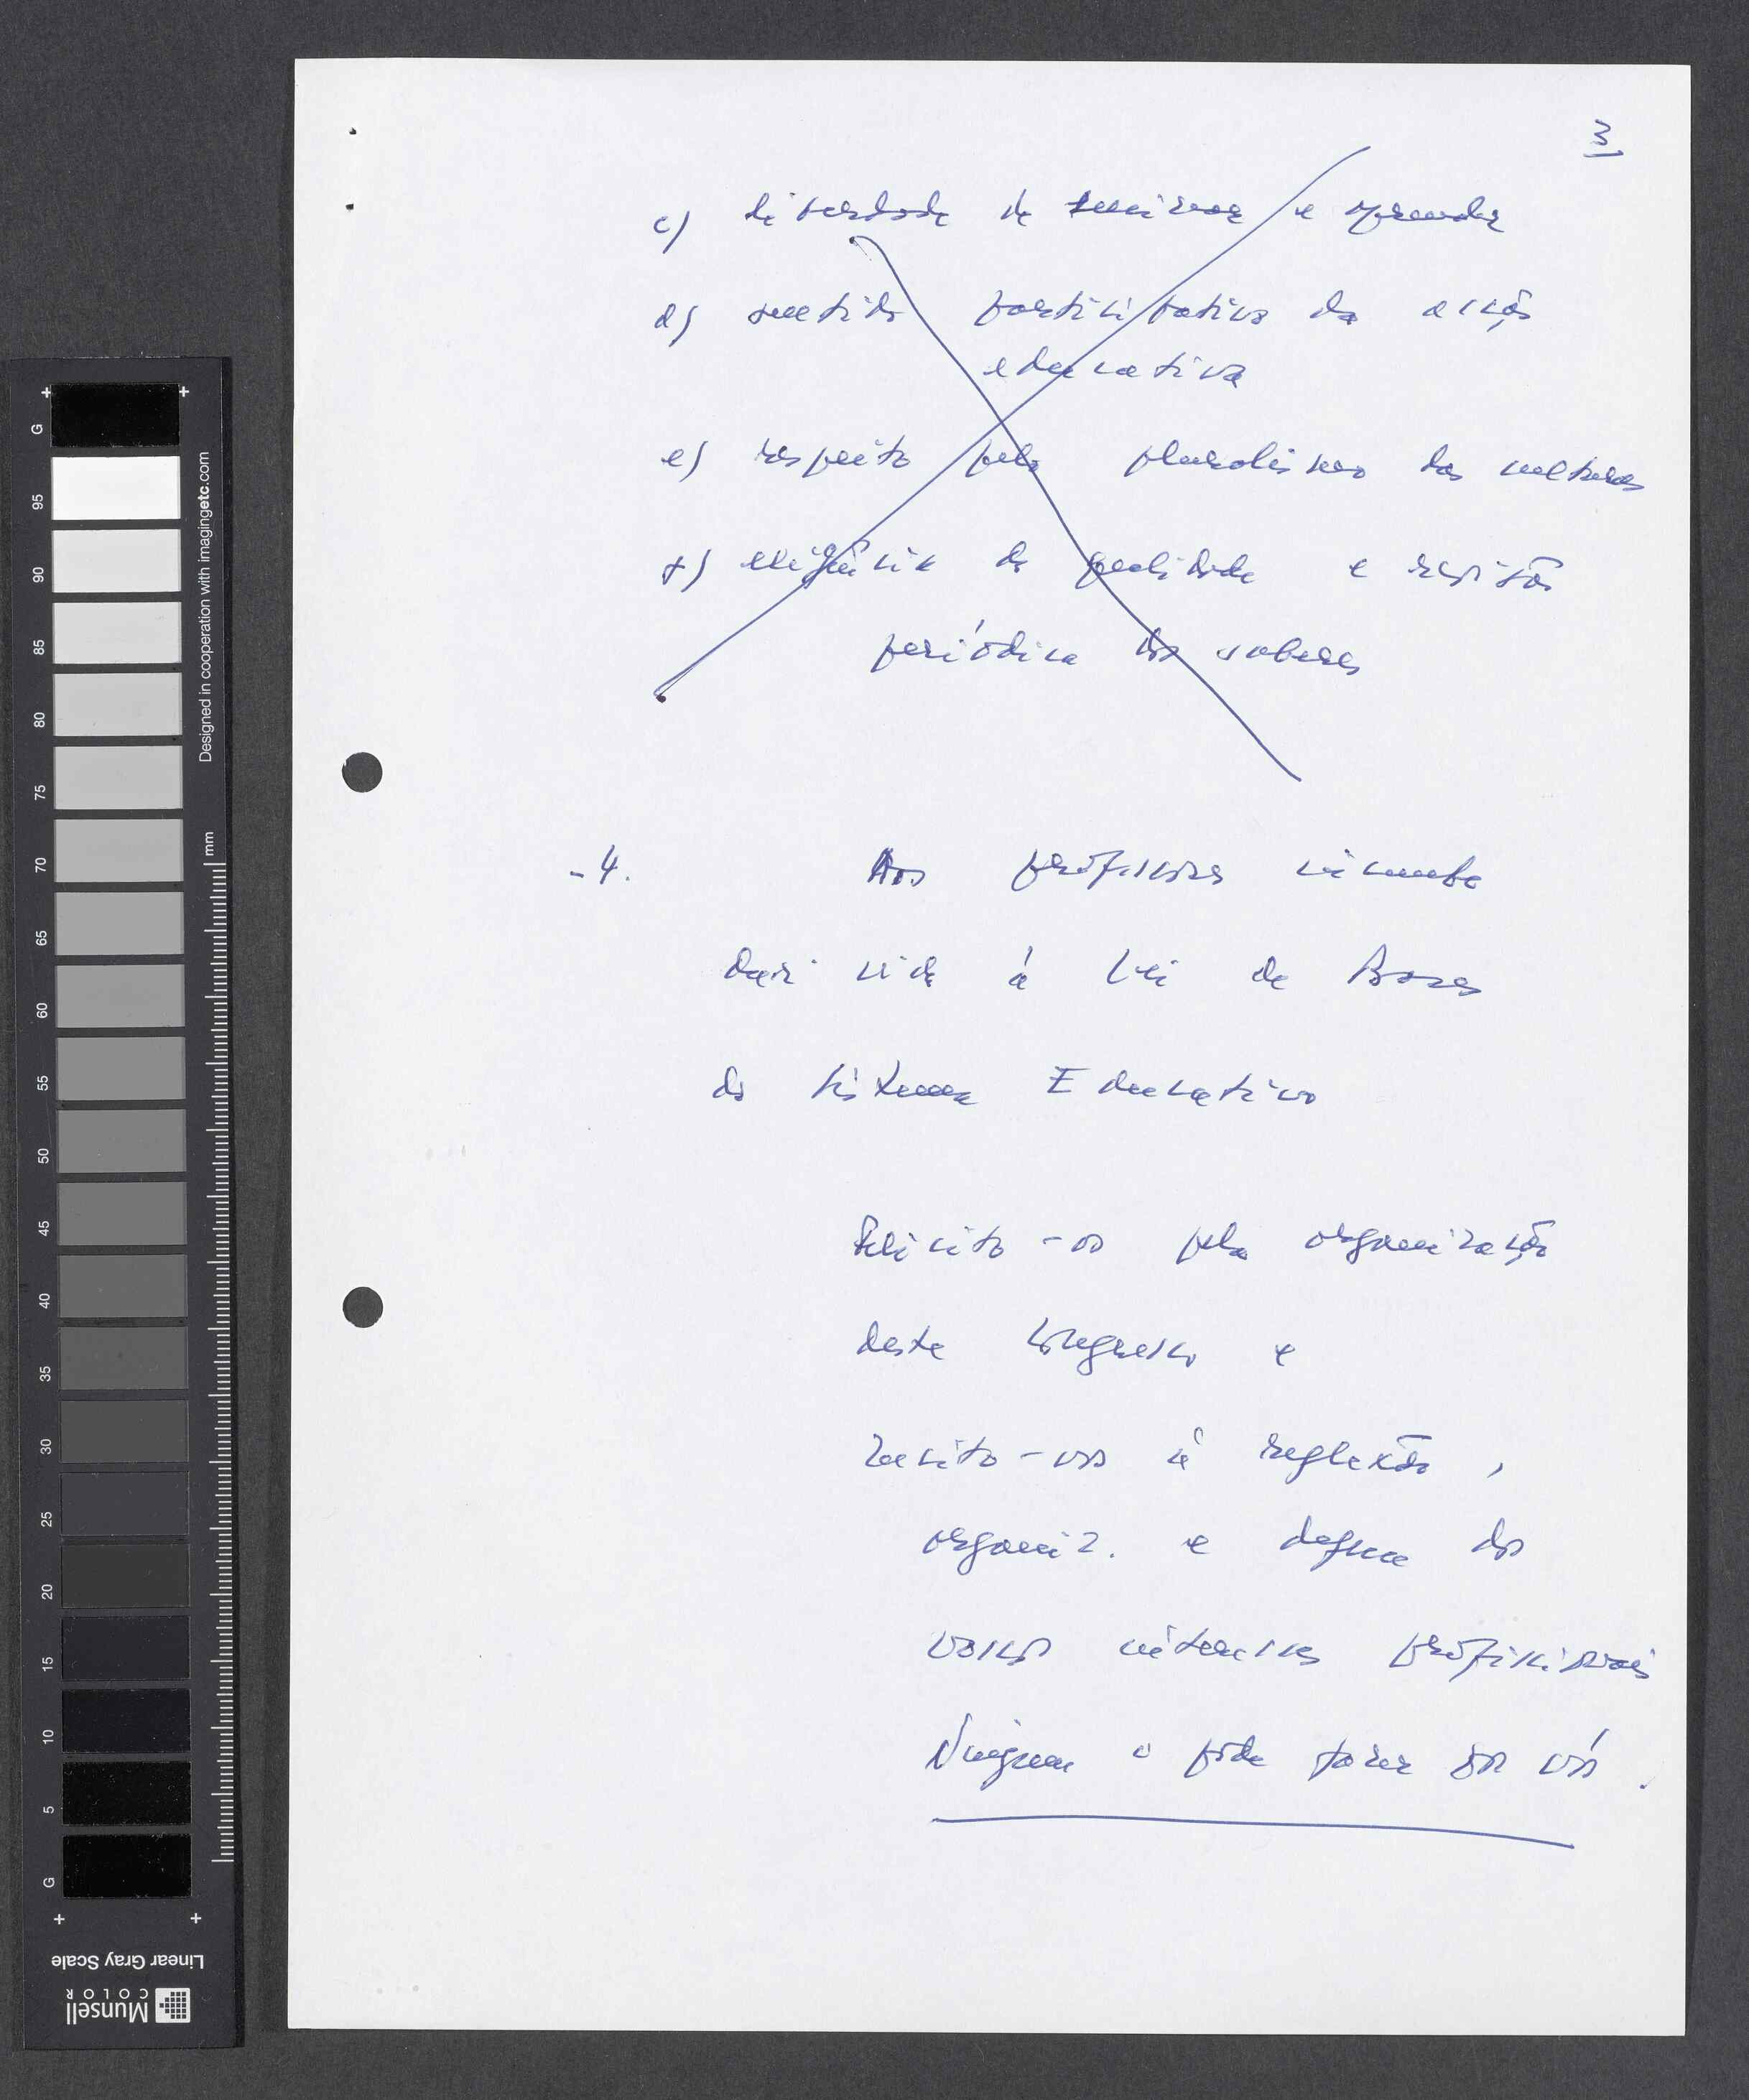 3
c) liberdade de ensinar e aprender
d) sentido participativo da acção
educativa
e) respeito pelo pluralismo das culturas
f) exigência de qualidade e revisão
periódica dos saberes
- 4. Aos professores incumbe
dar vida à Lei de Bases
do Sistema Educativo
Felicito-os pela organização
deste Congresso e
incito-vos à reflexão,
organiz. e defesa dos
vossos interesses profissionais
Ninguem o pode fazer por vós.
G
95
90
85
80
75
70
65
60
55
50
45
40
35
30
25
20
15
10
5
G
mm
Designed in cooperation with imagingetc.com
Linear Gray Scale
Munsell
COLOR